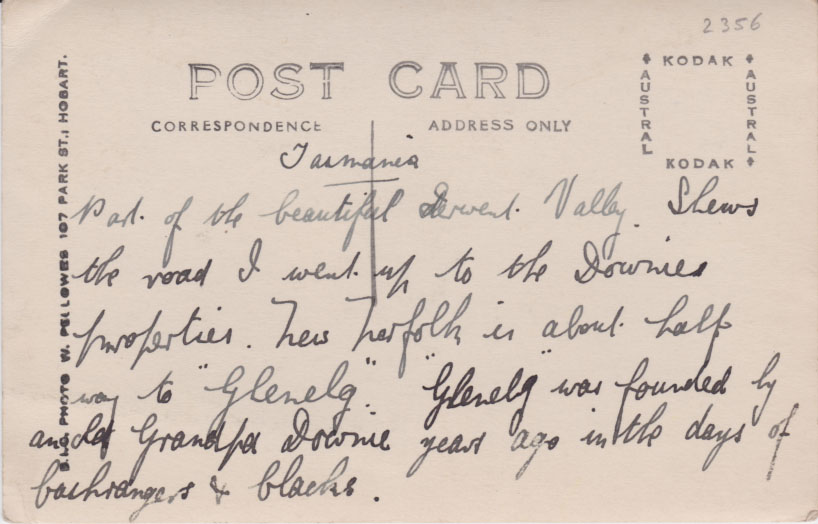 2356
POST CARD
CORRESPONDENCE
ADDRESS ONLY
KODAK
AUSTRAL
AUSTRAL
KODAK
PHOTO W. FELLOWES 107 PARK ST., HOBART.
Tasmania
Part. of the beautiful Derwent. Valley. Shews
the road I went up to the Downies
properties. New Norfolk is about half
way to "Glenelg". "Glenelg" was founded by
an old Grandpa Downie years ago in the days of
bushrangers & blacks.